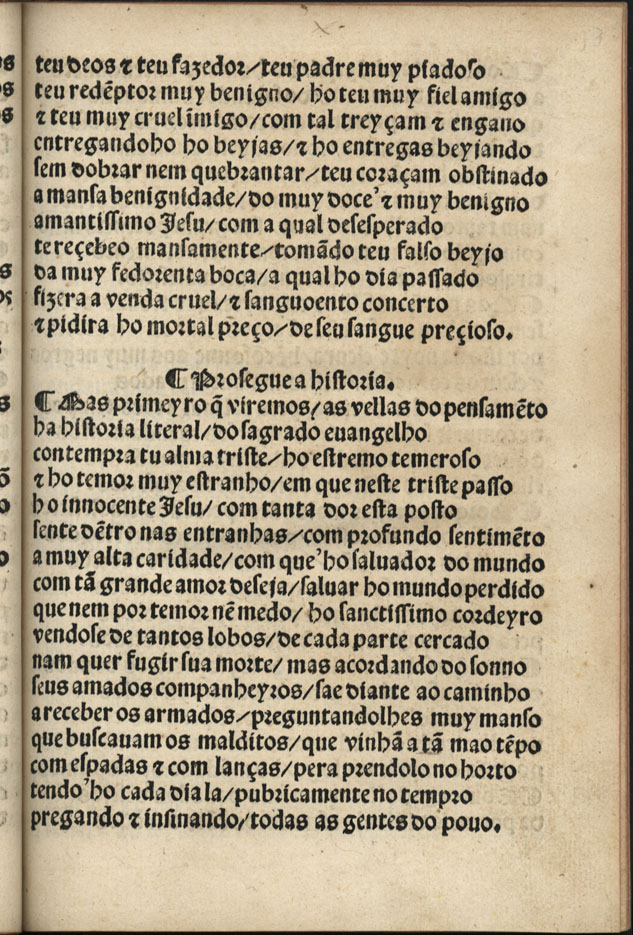 teu deos ⁊ teu fazedor/teu padre muy piadoso
teu redẽptor muy benigno/ ho teu muy fiel amigo
⁊ teu muy cruel ĩmigo/com tal treyçam ⁊ engano
entregandoho ho beyjas/⁊ ho entregas beyjando
sem dobrar nem quebrantar/teu coraçam obstinado
a mansa benignidade/do muy doce’⁊ muy benigno
amantissimo Jesu/com a qual desesperado
te reçebeo mansamente/tomãdo teu falso beyjo
da muy fedorenta boca/a qual ho dia passado
fizera a venda cruel/⁊ sanguoento concerto
⁊ pidira ho mortal preço/de seu sangue preçioso.
¶ Prosegue a historia.
¶ Mas primeyro q̃ viremos/as vellas do pensamẽto
ha historia literal/do sagrado euangelho
contempra tu alma triste/ho estremo temeroso
⁊ ho temor muy estranho/em que neste triste passo
ho innocente Jesu/com tanta dor esta posto
sente dẽtro nas entranhas/com profundo sentimẽto
a muy alta caridade/com que’ho saluador do mundo
com tã grande amor deseja/saluar ho mundo perdido
que nem por temor nẽ medo/ ho sanctissimo cordeyro
vendose de tantos lobos/de cada parte cercado
nam quer fugir sua morte/ mas acordando do sonno
seus amados companheyros/sae diante ao caminho
a receber os armados/preguntandolhes muy manso
que buscauam os malditos/que vinhã a tã mao tẽpo
com espadas ⁊ com lanças/pera prendolo no horto
tendo’ho cada dia la/pubricamente no tempro
pregando ⁊ insinando/todas as gentes do pouo.